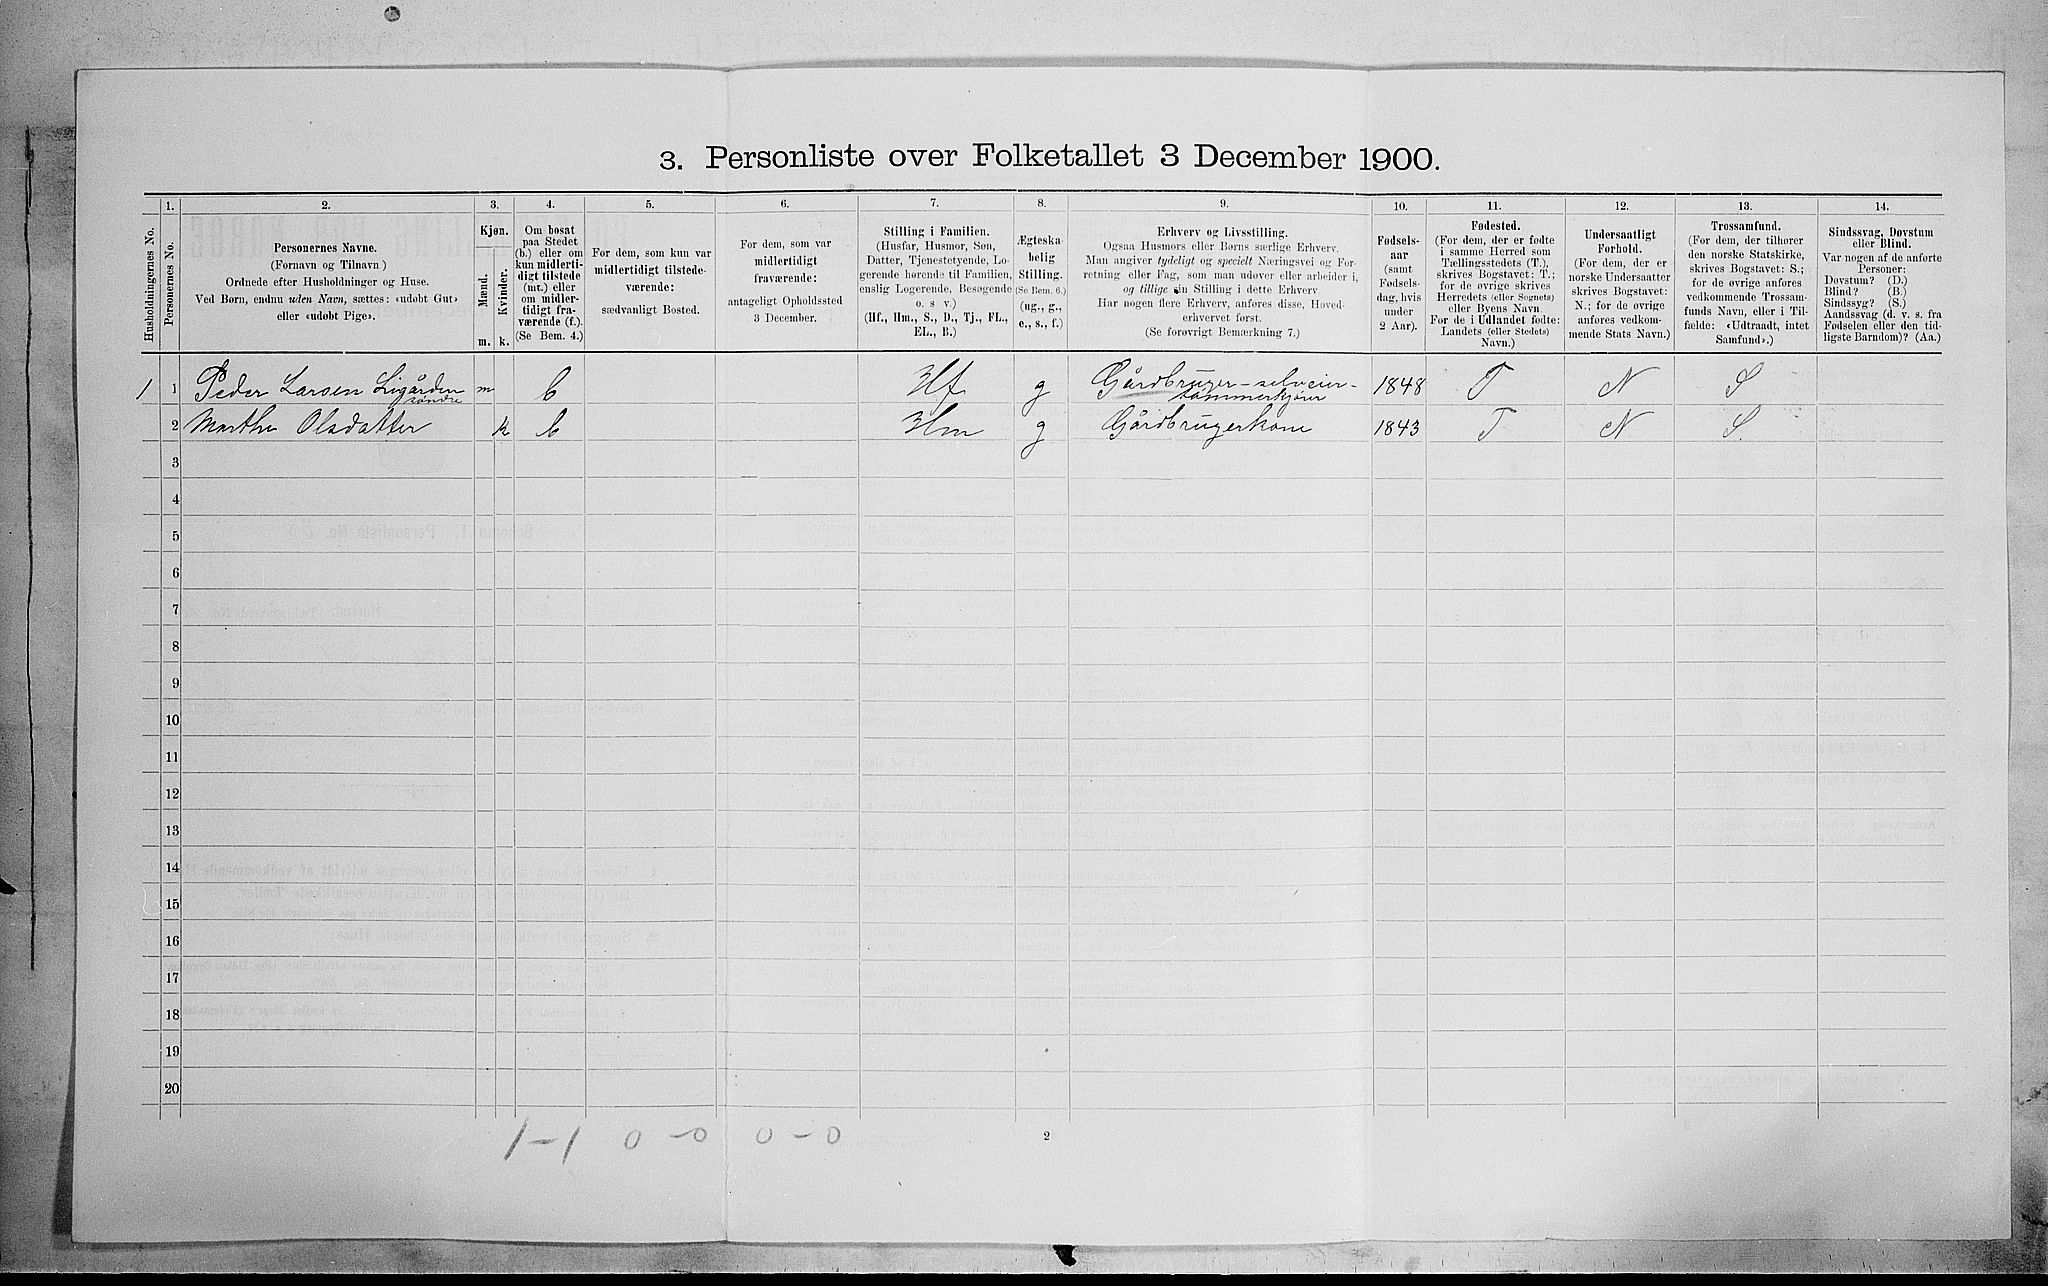 3. Personliste over Folketallet 3 December 1900.
Husholdningernes No.
1.
Personernes No.
2.
Personernes Navne.
(Fornavn og Tilnavn)
Ordnede efter Husholdninger og Huse.
Ved Børn, endnu uden Navn, sættes: «udobt Gut»
eller «udobt Pige».
3.
Kjøn.
Mænd.
Kvinder.
m. k.
4.
Om bosat
paa Stedet
(b.) eller om
kun midlerti-
digt tilstede
(mt.) eller
om midler-
tidigt fra-
værende (f.).
(Se Bem. 4.)
5.
For dem, som kun var
midlertidigt tilstede-
værende:
sædvanligt Bosted.
6.
For dem, som var
midlertidigt
fraværende:
antageligt Opholdssted
3 December.
7.
Stilling i Familien.
(Husfar, Husmor, Søn,
Datter, Tjenestetyende, Lo-
gerende hørende til Familien,
enslig Logerende, Besøgende
o. s v.)
(Hf., Hm., S., D., Tj., FL.,
EL., B.)
8.
Ægteska-
belig
Stilling.
(Se Bem. 6.)
(ug., g.,
e., s., f.)
9.
Erhverv og Livsstilling.
Ogsaa Husmors eller Børns særlige Erhverv.
Man angiver tydeligt og specielt Næringsvei og For-
retning eller Fag, som man udøver eller arbeider i,
og tillige sin Stilling i dette Erhverv
Har nogen flere Erhverv, anføres disse, Hoved-
erhvervet først.
(Se forøvrigt Bemærkning 7.)
10.
Fødsels-
aar
(samt
Fødsels-
dag, hvis
under
2 Aar).
11.
Fødested.
(For dem, der er fødte
i samme Herred som
Tællingsstedets (T.),
skrives Bogstavet: T.;
for de øvrige skrives
Herredets (eller Sognets)
eller Byens Navn.
For de i Udlandet fødte:
Landets (eller Stedets)
Navn.)
12.
Undersaatligt
Forhold.
(For dem, der er
norske Undersaatter
skrives Bogstavet:
N.; for de øvrige
anføres vedkom-
mende Stats Navn.)
13.
Trossamfund.
(For dem, der tilhører
den norske Statskirke,
skrives Bogstav: S.;
for de øvrige anføres
vedkommende Trossam-
funds Navn, eller i Til-
fælde: «Udtraadt, intet
Samfund».)
14.
Sindssvag, Døvstum
eller Blind.
Var nogen af de anførte
Personer:
Døvstum? (D.)
Blind? (B.)
Sindssyg? (S.)
Aandssvag (d. v. s. fra
Fødselen eller den tid-
ligste Barndom)? (Aa.)
1 1 Peder Larsen Livgården søndre m b Hf g Gårdbruger-selveier- tømmerkjører 1848 T N S
2 Marthe Olsdatter k b Hm g Gårdbrugerkone 1843 T N S.
3
4
5
6
7
8
9
10
11
12
13
14
15
16
17
18
19
20
1-1 0-0 0-0
2